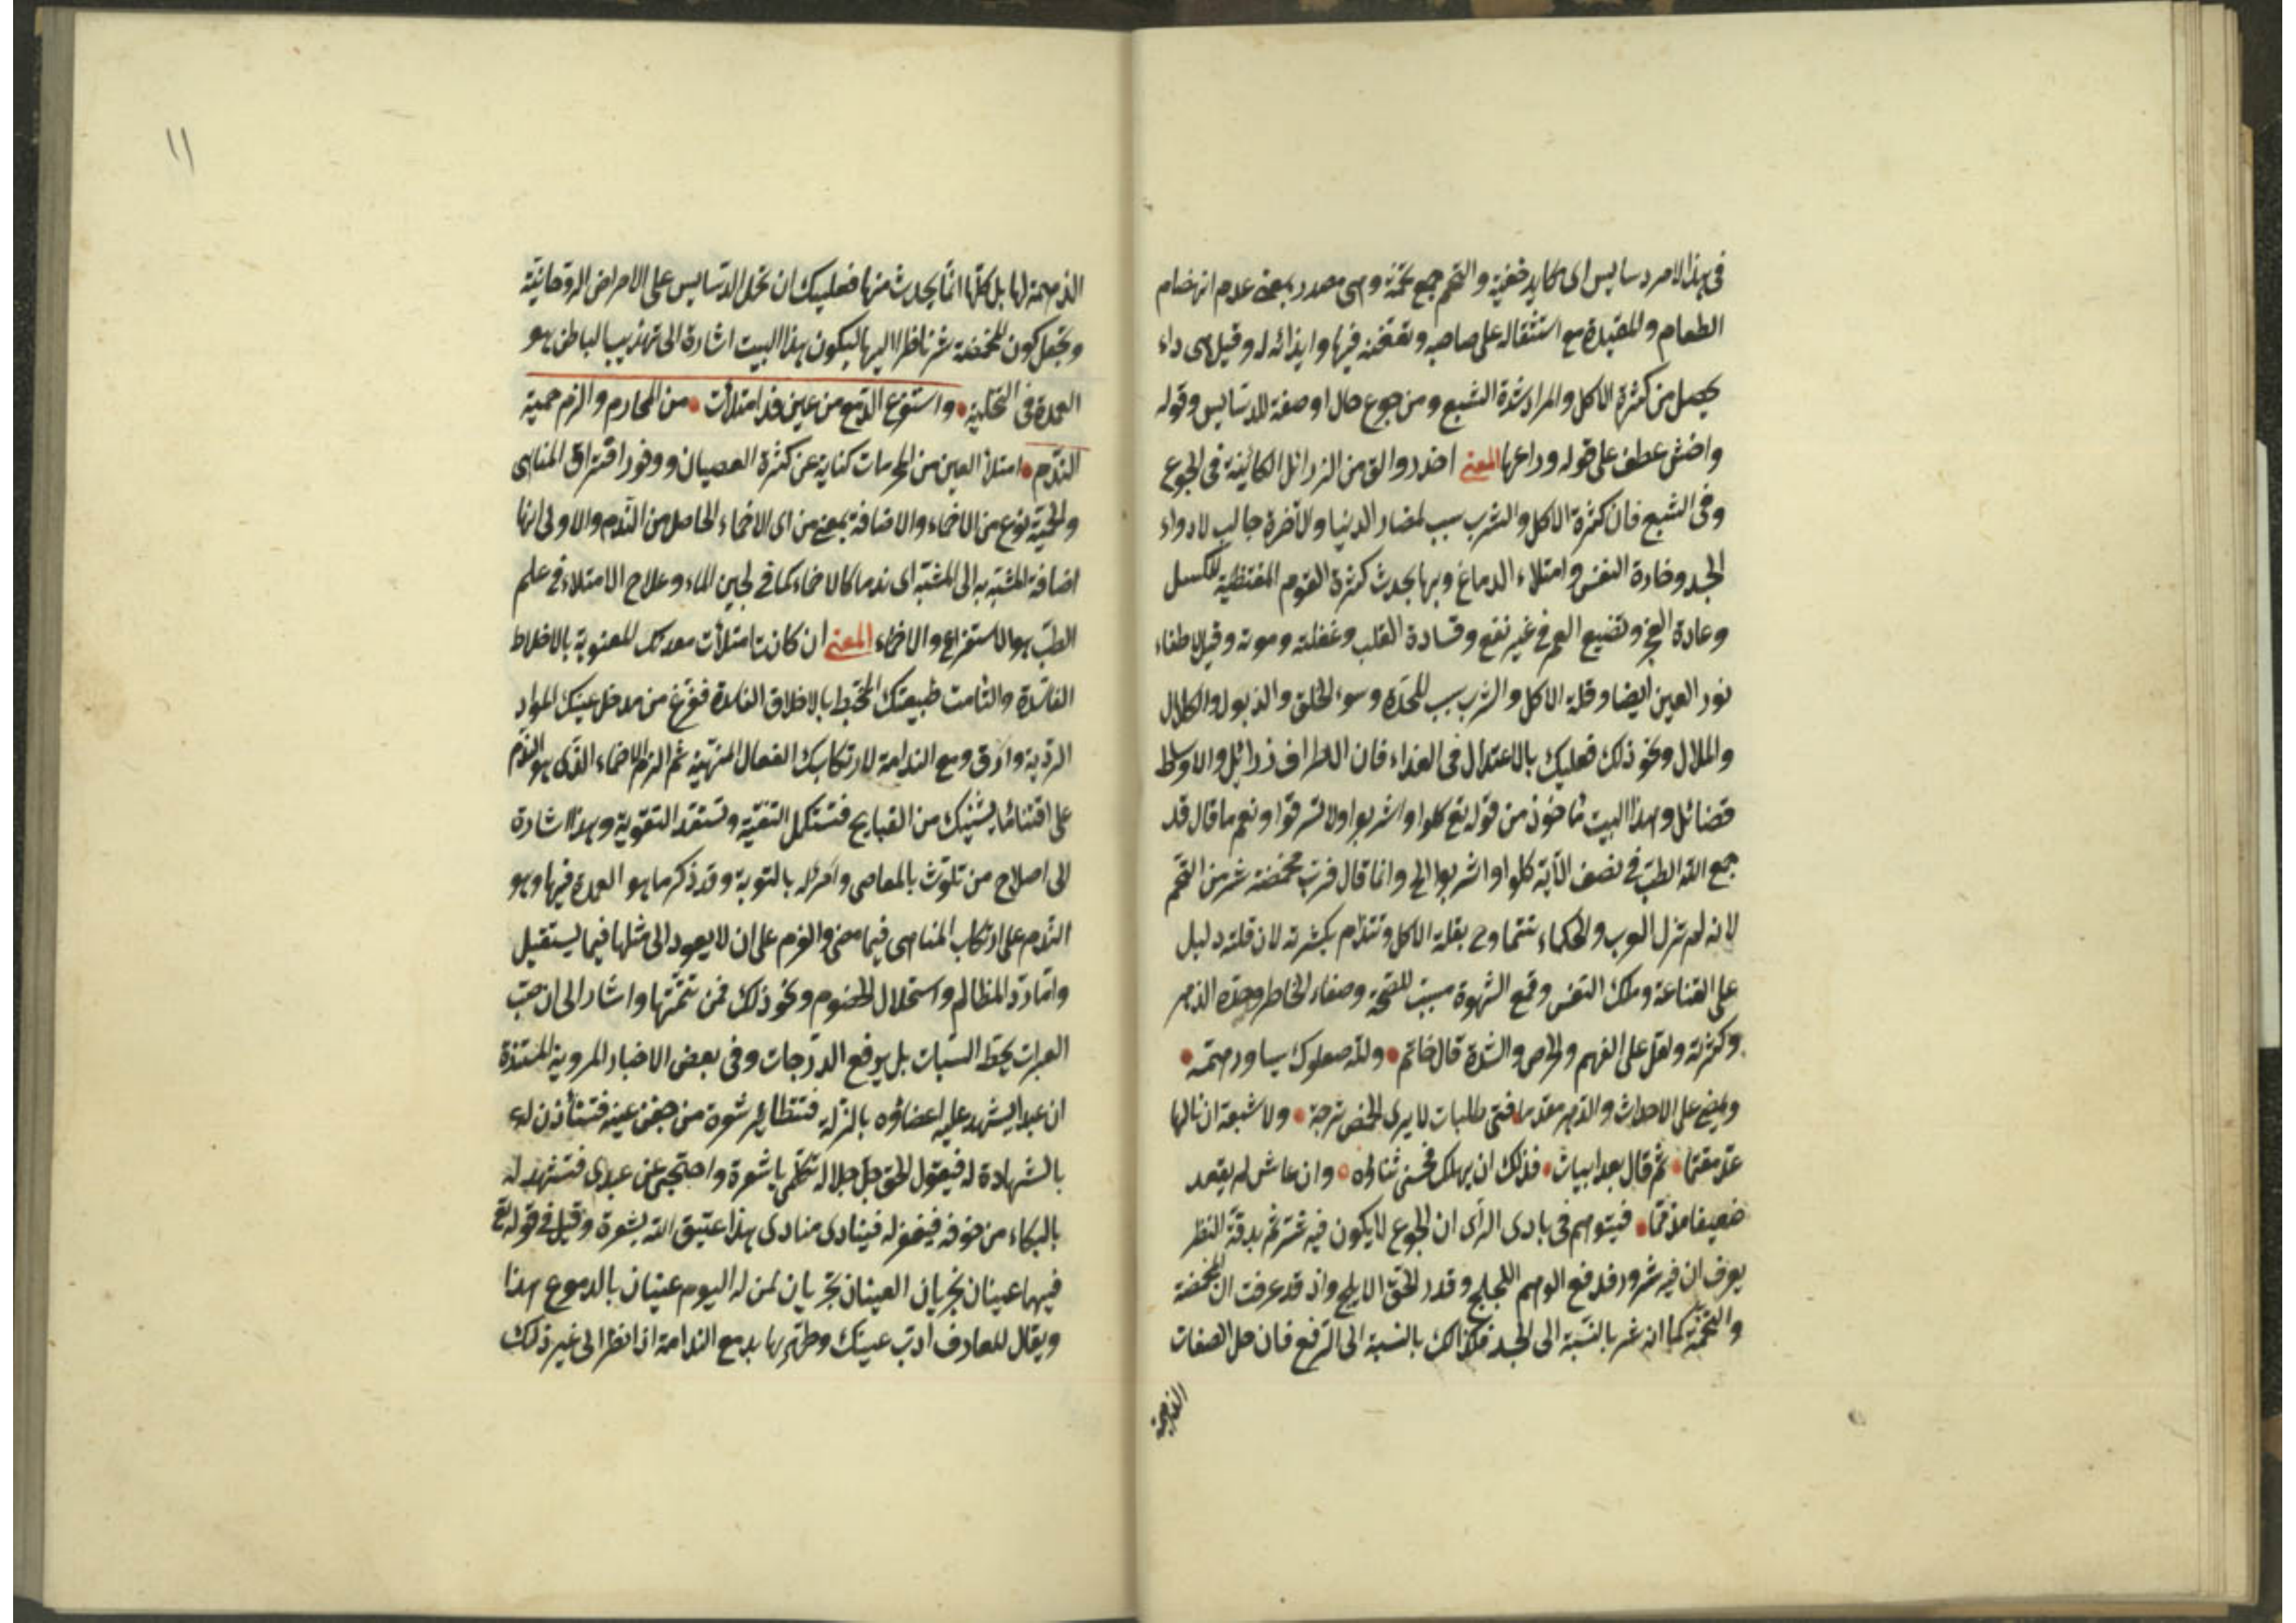 فى هذا الامر دسايس اى مكايد خفية والتخم جمع تخمة وهى مصدر بمعنى عدم انهضام
الطعام والمعدة مع استثقاله على صاحبه وتعفنه فيها وايذائه له وقيل هى داء
يحصل من كثرة الاكل والمراد شدة الشبع ومن جوع حال او صفة للدسايس وقوله
واخش عطف على قوله وراعها المعنى احذر واتق من الرذائل الكائنة فى الجوع
وفى الشبع فان كثرة الاكل والشرب سبب لمضار الدنيا والآخرة جالب لادواء
الجسد وخادة النفس وامتلاء الدماغ وبها يحدث كثرة النوم المقتضية للكسل
وعادة العجز وتضييع العمر فى غير نفع وقساوة القلب وغفلته وموته وقيل اطفاء
نور العين ايضا وقلة الاكل والشرب سبب للحدة وسوء الخلق والذبول والكلال
والملال ونحو ذلك فعليك بالاعتدال فى الغذاء فان الاطراف رذائل والاوسط
فضائل وهذا البيت مأخوذ من قوله تع كلوا واشربوا ولا تسرفوا ونعم ما قال قد
جمع الله الطب فى نصف الآية كلوا واشربوا الخ وانما قال فرب مخمصة شر من التخم
لانه لم تزل العرب والحكماء تتمادح بقلة الاكل وتتذام بكثرته لان قلته دليل
على القناعة وملك النفس وقمع الشهوة مسبب للصحة وصفاء الخاطر وحدة الذهن
وكثرته دليل على النهم والحرص والشدة قال حاتم • ولله صعلوك يساور همه •
ويمضى على الاحداث والدهر مقدما فتى طلبات لا يرى الخمص ترحة • ولا شبعة ان نالها
عد مغنما • ثم قال بعد ابيات • فذلك ان يهلك فحسنى ثناؤه • وان عاش لم يقعد
ضعيفا مذمما • فيتوهم فى بادى الرأى ان الجوع لا يكون فيه شر ثم بدقة النظر
يعرف ان فيه شرور فدفع الوهم اللجلج وقدر الحق الابلج واذ قد عرفت ان المخمصة
والتخمة كما انه شر بالنسبة الى الجسد فكذلك بالنسبة الى الروح فان كل الصفات
الذميمة
١١
الذميمة لها بل كلها انما يحدث منها فعليك ان تحمل الدسايس على الامراض الروحانية
وتجعل كون المخمصة شر ناظرا اليها ليكون هذا البيت اشارة الى تهذيب الباطن هو
العمدة فى التحلية • واستفرغ الدمع من عين قد امتلأت • من المحارم والزم حمية
الندم • امتلأ العين من المحرمات كناية عن كثرة العصيان ووفور اقتراف المناهى
والحمية نوع من الاحتماء والاضافة بمعنى من اى الاحتماء الحاصل من الندم والاولى انها
اضافة المشبه به الى المشبه اى ندما كالاحتماء كما فى لجين الماء وعلاج الامتلاء فى علم
الطب هو الاستفراغ والاحتماء المعنى ان كانت امتلأت معدتك المعنوية بالاخلاط
الفاسدة والتأمت طبيعتك المختبط بالاخلاق الفاسدة ففرغ من مدخل عينك المواد
الردية وارق دمع الندامة لارتكابك الفعال المنهية ثم الزم الاحتماء الذى هو الندم
على اقتناء ما يشينك من القبايح فتستكمل التنقية وتستعقد التقوية وهذا اشارة
الى اصلاح من تلوث بالمعاصى وامر له بالتوبة وقد ذكر ما هو العمدة فيها وهو
الندم على ارتكاب المناهى فيما مضى والعزم على ان لا يعود الى مثلها فيما يستقبل
واما رد المظالم واستحلال الخصوم ونحو ذلك فمن تتمتها واشار الى ان صب
العبرات يحط السيئات بل يرفع الدرجات وفى بعض الاخبار المروية المستندة
ان عبدا يشهد عليه اعضاؤه بالزلة فتتطاير شعرة من جفن عينه فتستأذن له
بالشهادة له فيقول الحق جل جلاله تكلمى يا شعرة واحتجى عن عبدى فتشهد له
بالبكاء من خوفه فيغفر له فينادى منادى هذا عتيق الله بشعرة وقيل فى قوله تع
فيهما عينان تجريان العينان تجريان لمن له اليوم عينان بالدموع هذا
ويقال للعارف ادب عينك وطهرها بدمع الندامة اذا نظر الى غير ذلك